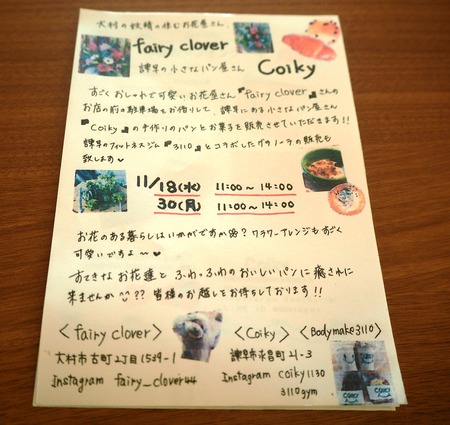 大村の妖精の住むお花屋さん、
fairy clover
諫早の小さなパン屋さん
Coiky
すごくおしゃれで可愛いお花屋さん『fairy clover』さんの
お店の前の駐車場をお借りして、諫早にある小さなパン屋さん
『Coiky』の手作りのパンとお菓子を販売させていただきます!!
諫早のフィットネスジム『3110』とコラボしたグラノーラの販売も
致します♥
11/18(水) 11:00~14:00
30(月) 11:00~14:00
お花のある暮らしはいかがですか?? フラワーアレンジもすごく
可愛いですよ~♥
すてきなお花達と ふわふわのおいしいパンに癒されに
来ませんか??? 皆様のお越しをお待ちしております!!
〈fairy clover〉
大村市古町2丁目1539-1
Instagram fairy_clover44
〈Coiky〉 〈Bodymake3110〉
諫早市永昌町21-3
Instagram coiky1130
3110gym